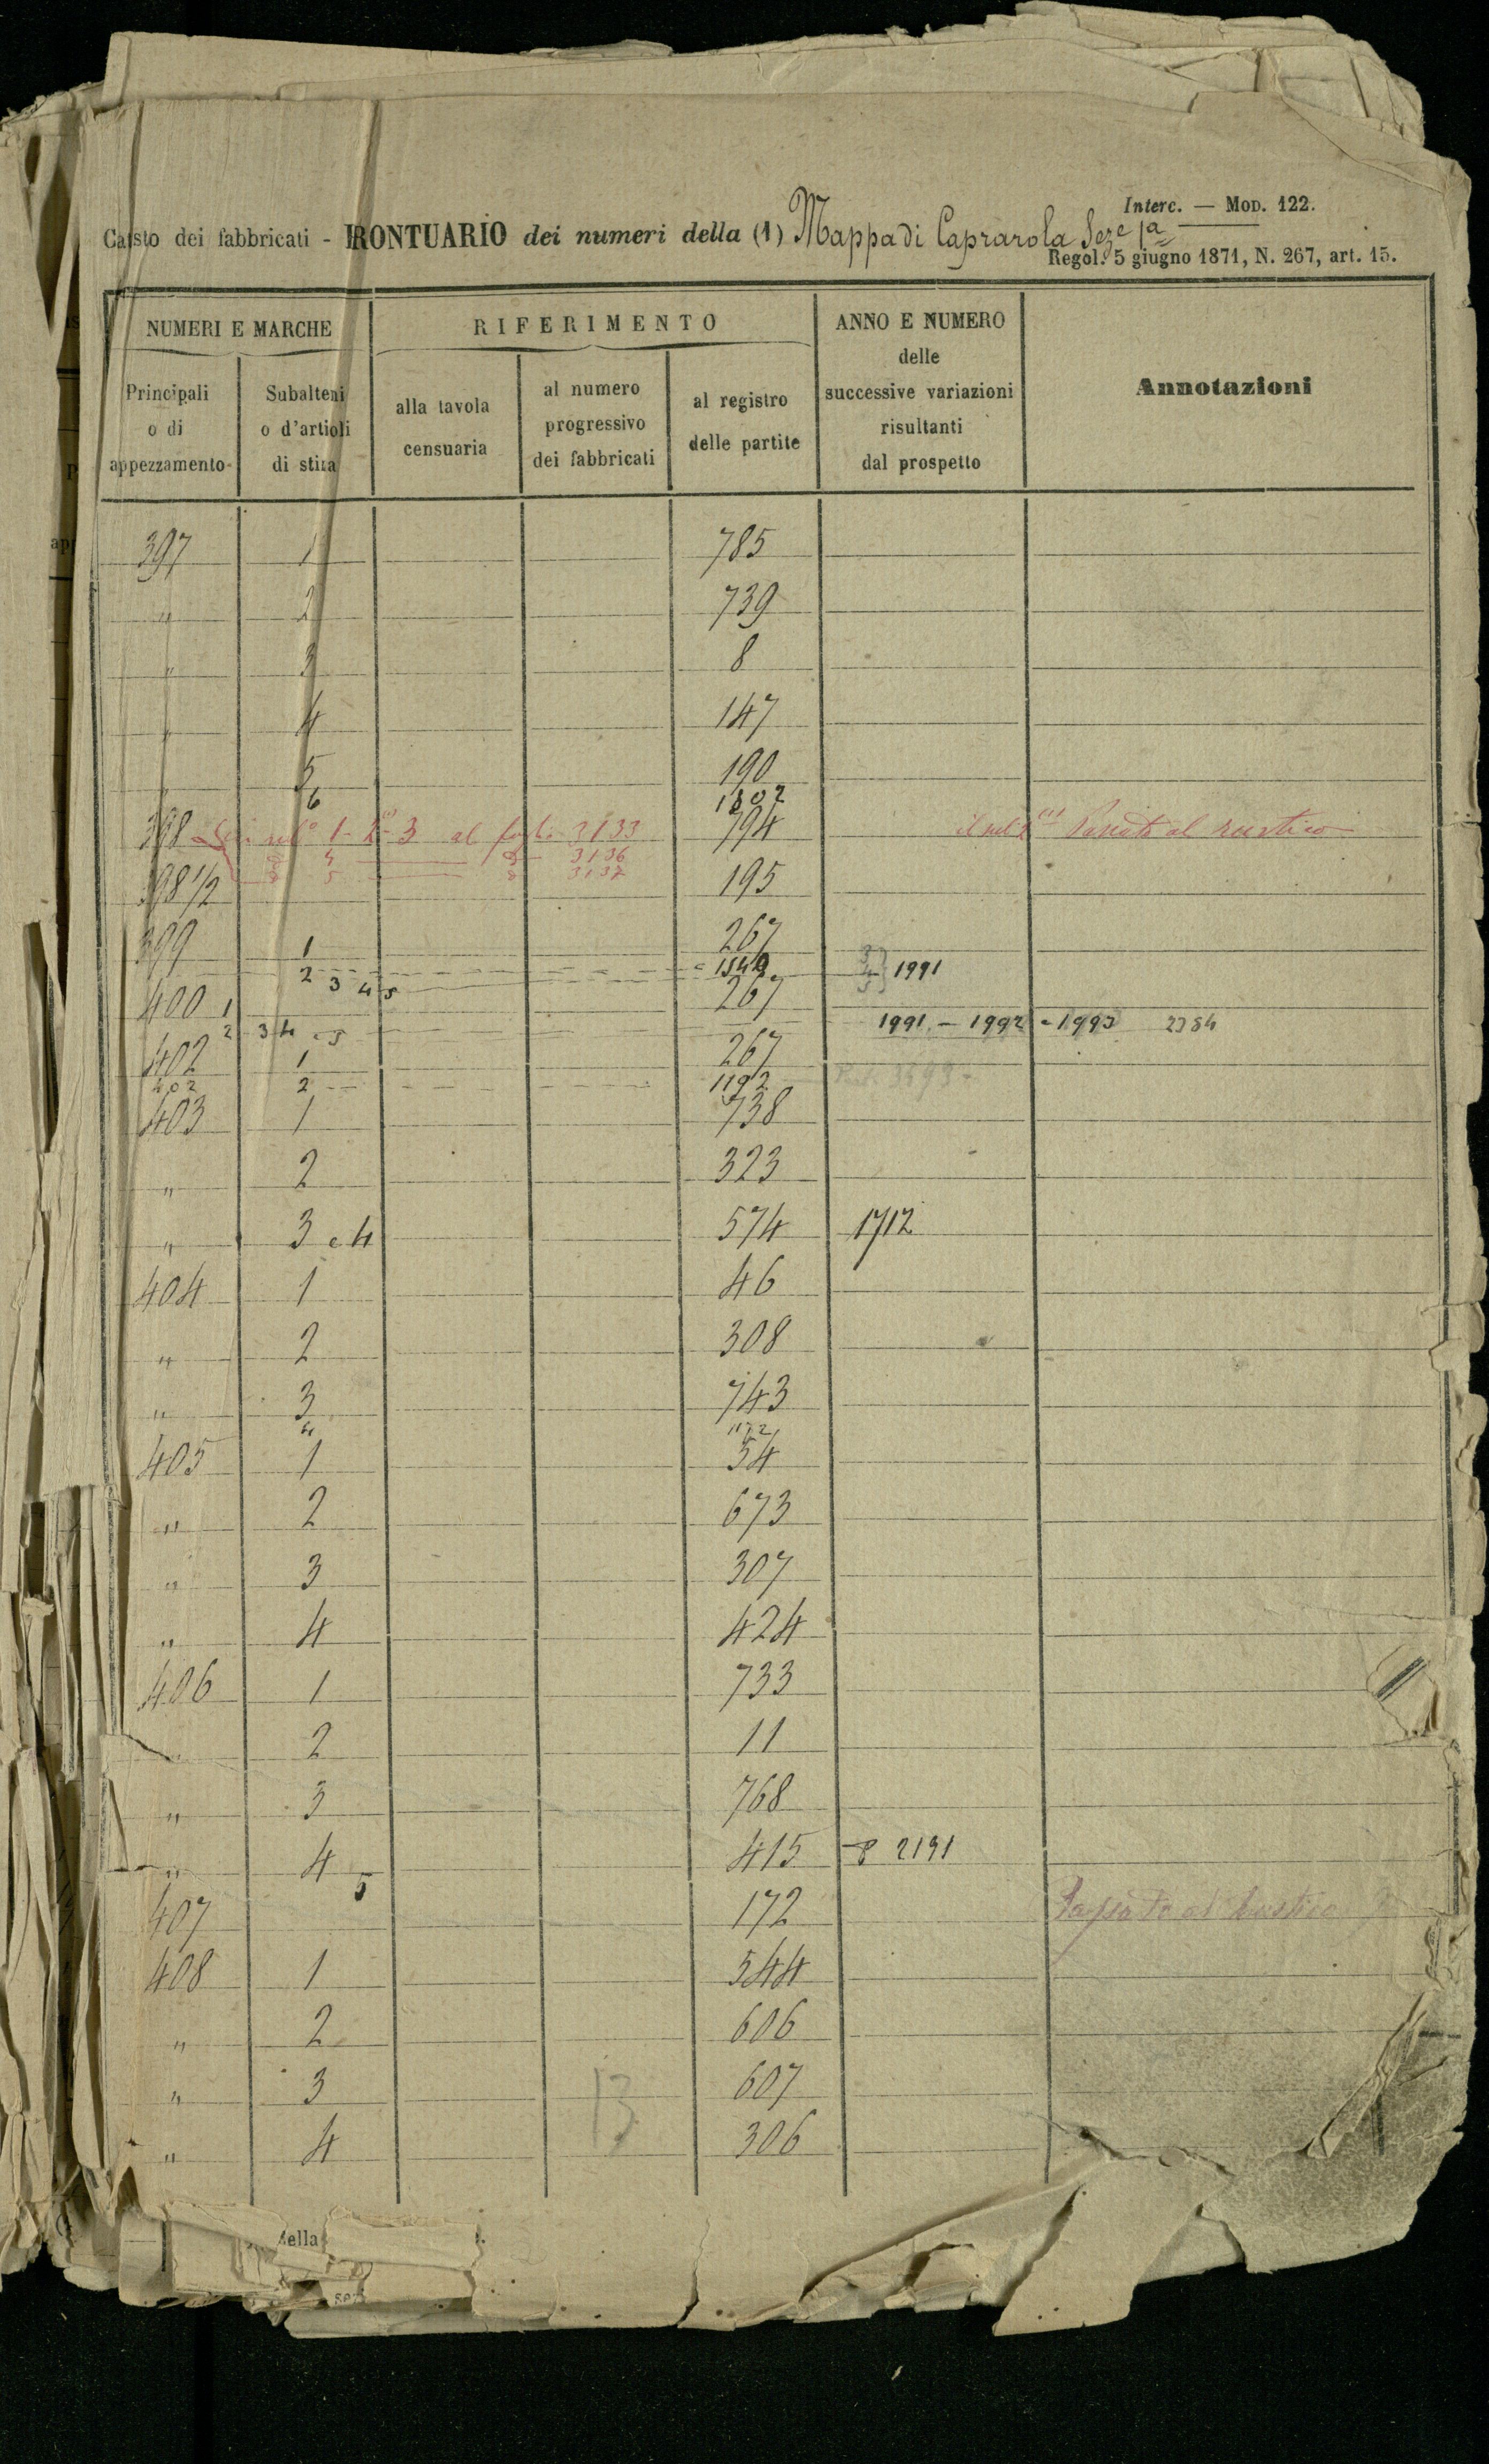 Interc. — Mod. 122.
Catsto dei fabbricati - PRONTUARIO dei numeri della (1) Mappa di Caprarola Sez.e 1a
Regol. 5 giugno 1871, N. 267, art. 15.
NUMERI E MARCHE RIFERIMENTO ANNO E NUMERO
delle
successive variazioni
risultanti
dal prospetto
Annotazioni
Principali
o di
appezzamento
Subalterni
o d'artioli
di stima
alla tavola
censuaria
al numero
progressivo
dei fabbricati
al registro
delle partite
397 1 785
" 2 739
" 3 8
" 4 147
" 5 190
6 1802
398 1 - 2 - 3 al foglio 3133 794 Passato al rustico
4 3136
5 3137
398 1/2 195
399 1 267
2 3 4 5 1540 3 4 5 } 1991
400 1 267
2 3 4 - 5 1991 - 1992 - 1993 2384
402 1 267
402 2 1192
403 1 738
" 2 323
" 3 e 4 574 1712
404 1 46
" 2 308
" 3 743
4 1172
405 1 54
" 2 673
" 3 307
" 4 424
406 1 733
" 2 11
" 3 768
" 4 415 2191
5
407 172 Passato al Rustico
408 1 544
" 2 606
" 3 607
13
" 4 306
della